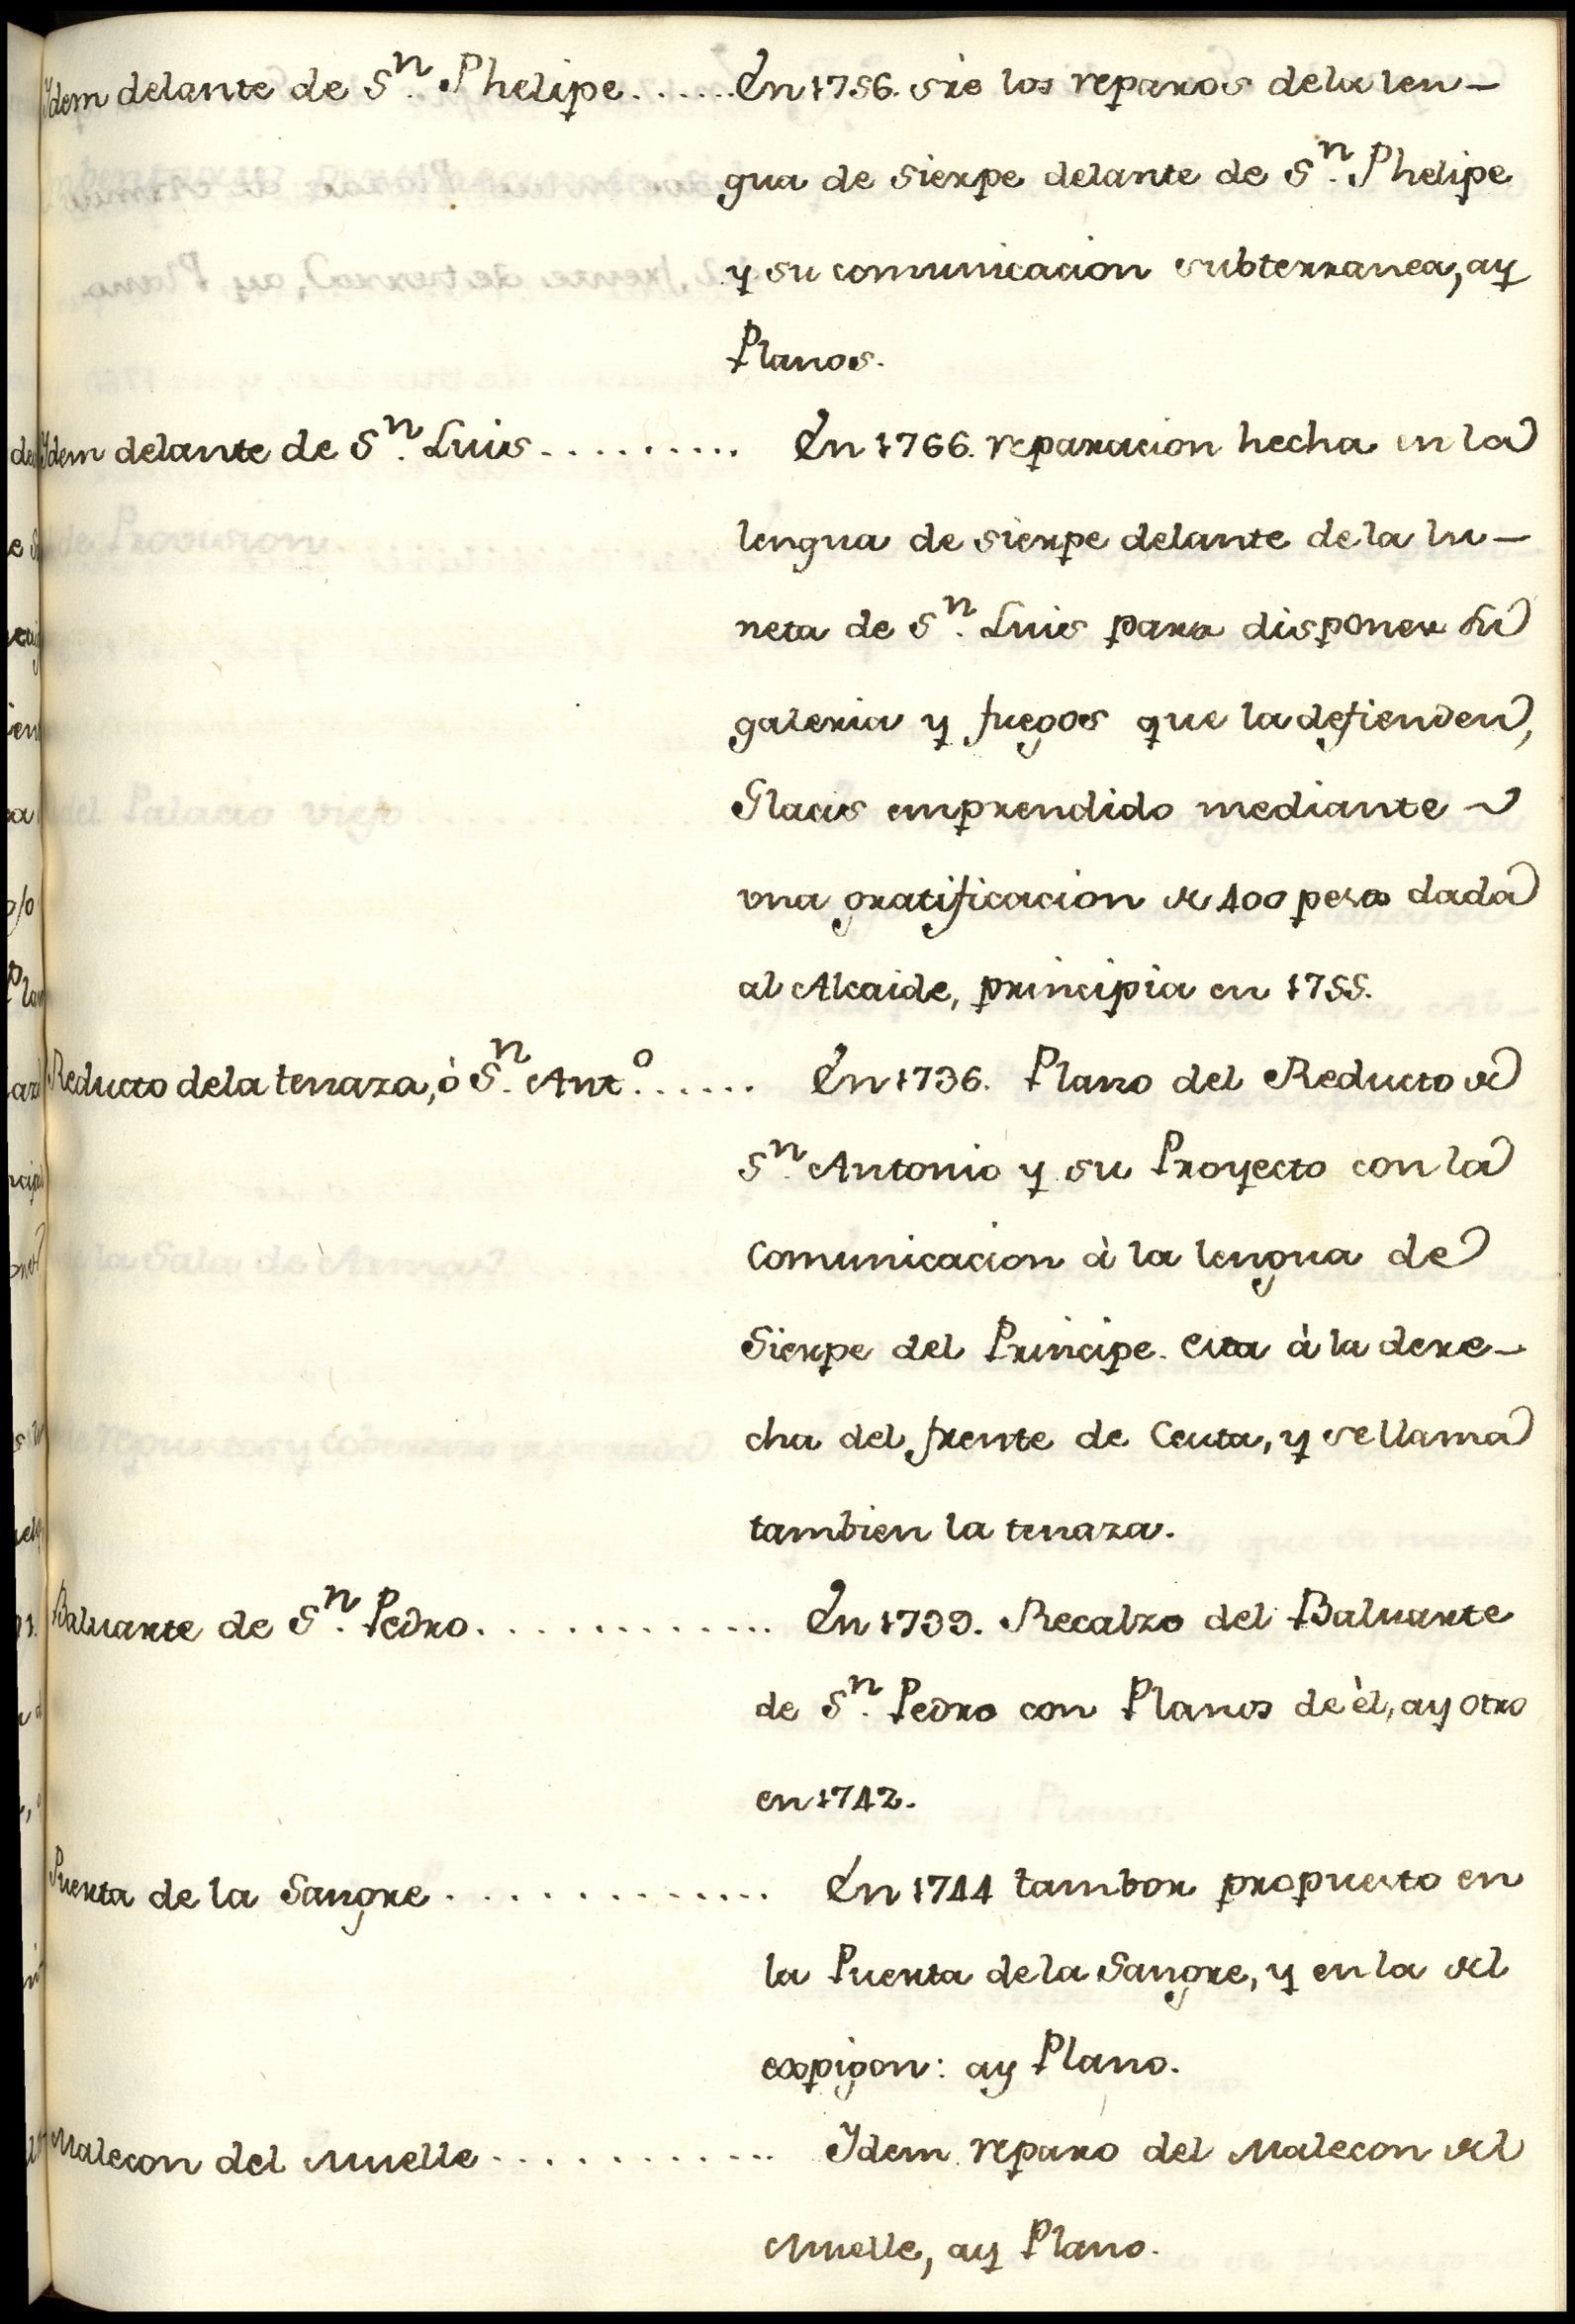 Ydem delante de Sⁿ. Phelipe......En 1756. sre los reparos dela len-
gua de sierpe delante de Sⁿ. Phelipe
y su comunicacion subterranea, ay
Planos.
Ydem delante de Sⁿ. Luis.......... En 1766. reparacion hecha en la
lengua de sierpe delante de la lu-
neta de Sⁿ. Luis para disponer su
galeria y fuegos que la defienden,
Glacis emprendido mediante
vna gratificacion de 400 pesos dada
al Alcaide, principia en 1755.
Reducto dela tenaza, ò Sⁿ. Antº....... En 1736. Plano del Reducto de
Sⁿ. Antonio y su Proyecto con la
Comunicacion à la lengua de
Sierpe del Principe. esta à la dere-
cha del frente de Ceuta, y se llama
tambien la tenaza.
Baluarte de Sⁿ. Pedro.............. En 1739. Recalzo del Baluarte
de Sⁿ. Pedro con Planos de èl, ay otro
en 1742.
Puerta de la Sangre.............. En 1744 tambor propuesto en
la Puerta de la Sangre, y en la del
espigon: ay Plano.
Malecon del Muelle............. Ydem reparo del Malecon del
Muelle, ay Plano.